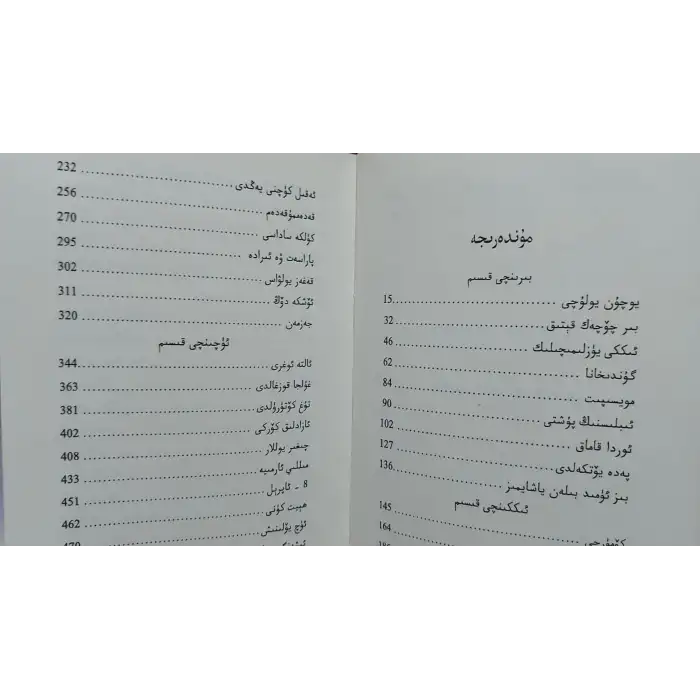 مۇندەرىجە
بىرىنچى قىسىم
يوچۇن يولۇچى ........ 15
بىر چۆچەك قېتىق ........ 32
ئىككى يۈزلىمىچىلىك ........ 46
گۈندىخانا ........ 62
مويسىپىت ........ 84
ئىبلىسنىڭ پۇشتى ........ 90
ئوردا قاماق ........ 102
پەدە يۆتكەلدى ........ 127
بىز ئۈمىد بىلەن ياشايمىز ........ 136
ئىككىنچى قىسىم
145
كۆمۈرچى ........ 164
ئەقىل كۈچنى يەڭدى ........ 232
قەدەممۇقەدەم ........ 256
كۈلكە ساداسى ........ 270
پاراسەت ۋە ئىرادە ........ 295
قەغەز يولۋاس ........ 302
ئۆشكە دۆڭ ........ 311
جەزمەن ........ 320
ئۈچىنچى قىسىم
ئالتە ئوغرى ........ 344
غۇلجا قوزغالدى ........ 363
تۇغ كۆتۈرۈلدى ........ 381
ئازادلىق كۆركى ........ 402
چىغىر يوللار ........ 408
مىللىي ئارمىيە ........ 433
8 - ئاپرېل ........ 451
ھېيت كۈنى ........ 462
ئۈچ يۆلىنىش